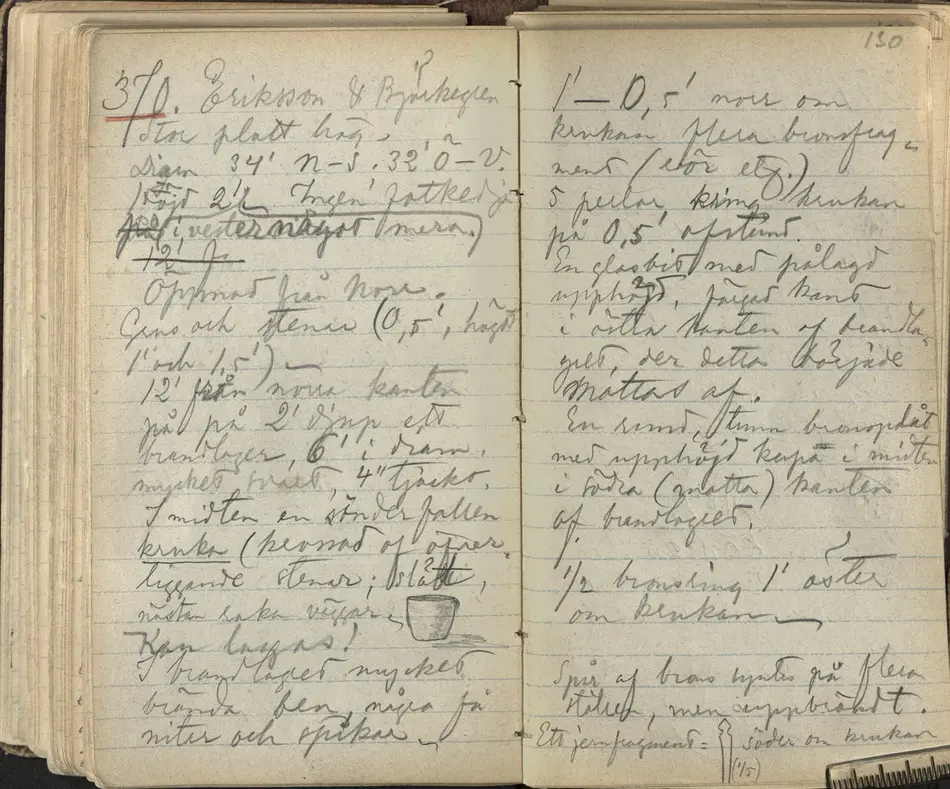 370. Eriksson & Björkegren
Stor platt hög.
Diam 34' N–S. 32' Ö–V.
Höjd 2'. Ingen fotkedja
(i vester något mera.)
12'
Öppnad från Norr.
Grus och stenar (0,5', högst
1' och 1,5')
12' från norra kanten
på 2' djup ett
brandlager, 6' i diam,
mycket svart, 4" tjockt.
I midten en sönderfallen
kruka (krossad af öfver-
liggande stenar; slät,
nästan raka väggar
Kan lagas!
I brandlagret mycket
brända ben, några få
nitar och spikar
130
1' – 0,5' norr om
krukan flera bronsfrag-
ment (etc.)
5 perlor kring krukan
på 0,5' afstånd.
En glasbit med pålagd
upphöjd, färgad kant
i östra kanten af brandla-
gret, der detta började
mattas af.
En rund, tunn bronsplåt
med upphöjd kupa i midten
i södra (matta) kanten
af brandlagret.
1/2 bronsring 1' öster
om krukan
Spår af brons syntes på flera
ställen, men uppbrändt.
Ett jernfragment = söder om krukan
(1/5)